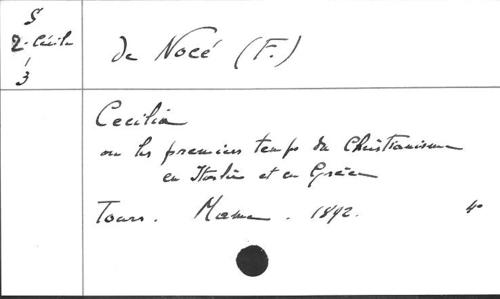 S
2-Cécile
/
3
de Nocé (F.)
Cecilia
ou les premiers temps du Christianisme
en Italie et en Grèce
Tours. Mame. 1892. 4°